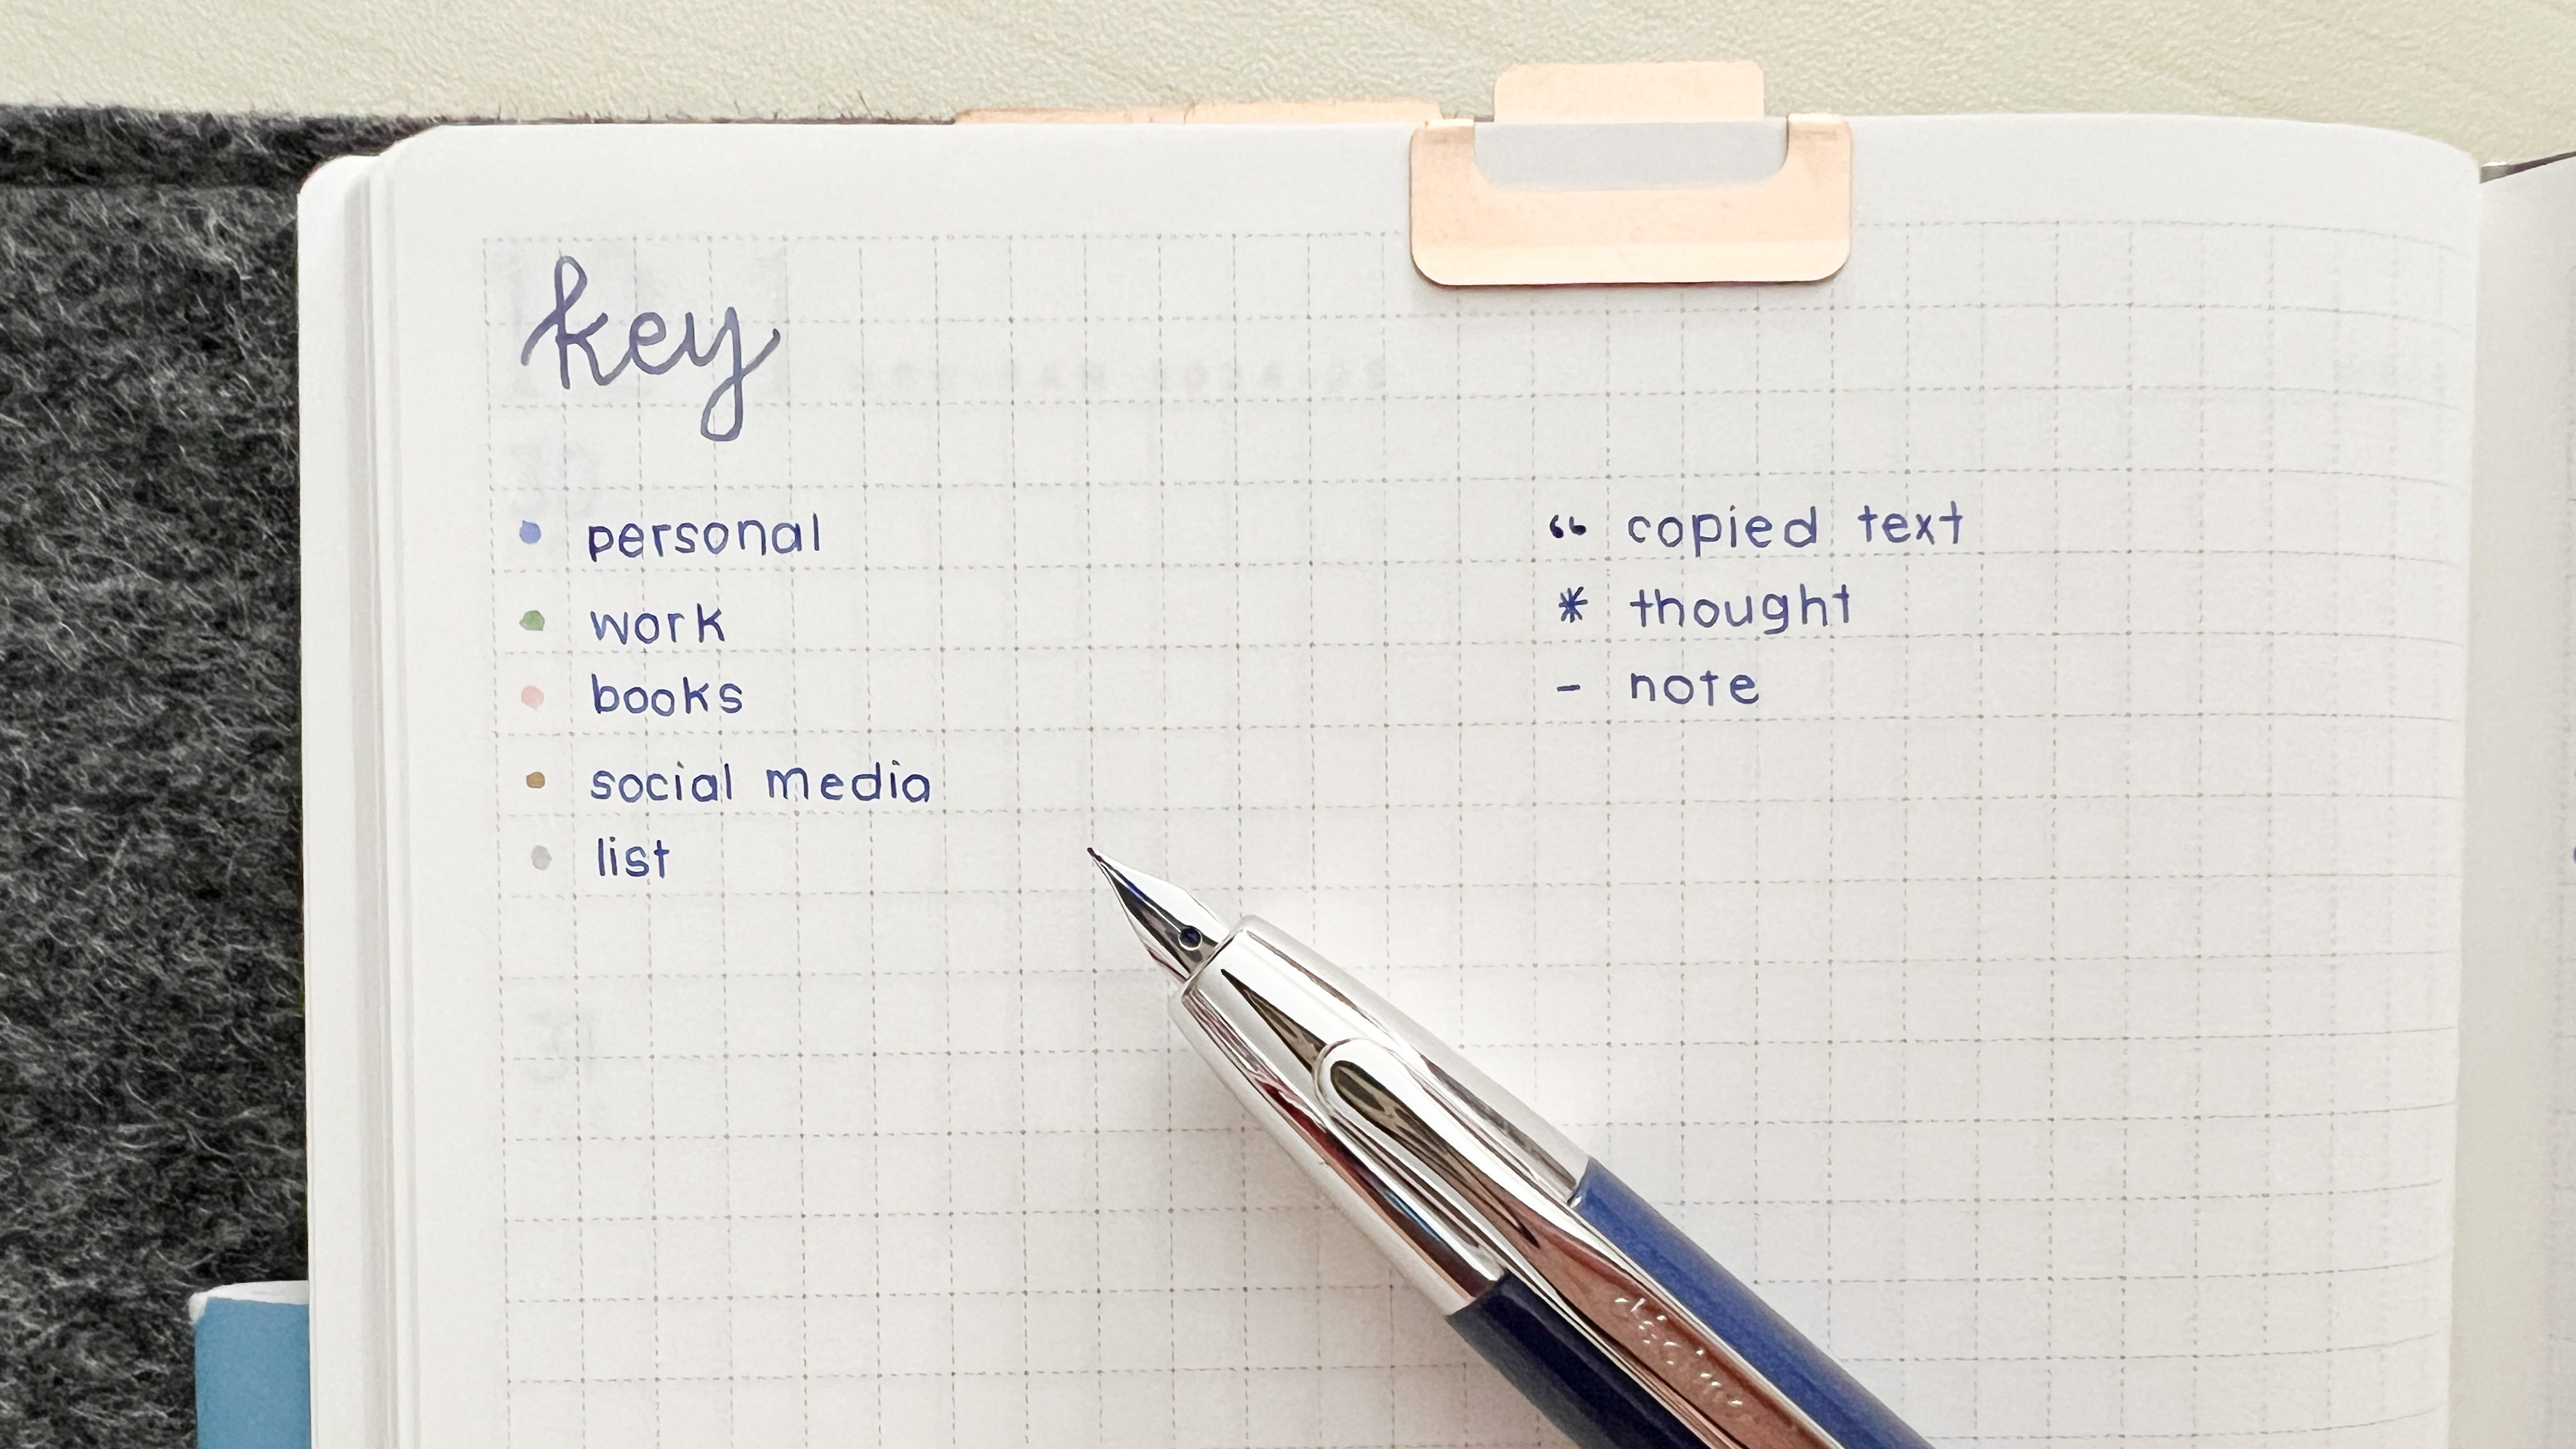 key
• personal
• work
• books
• social media
• list
“ copied text
* thought
- note